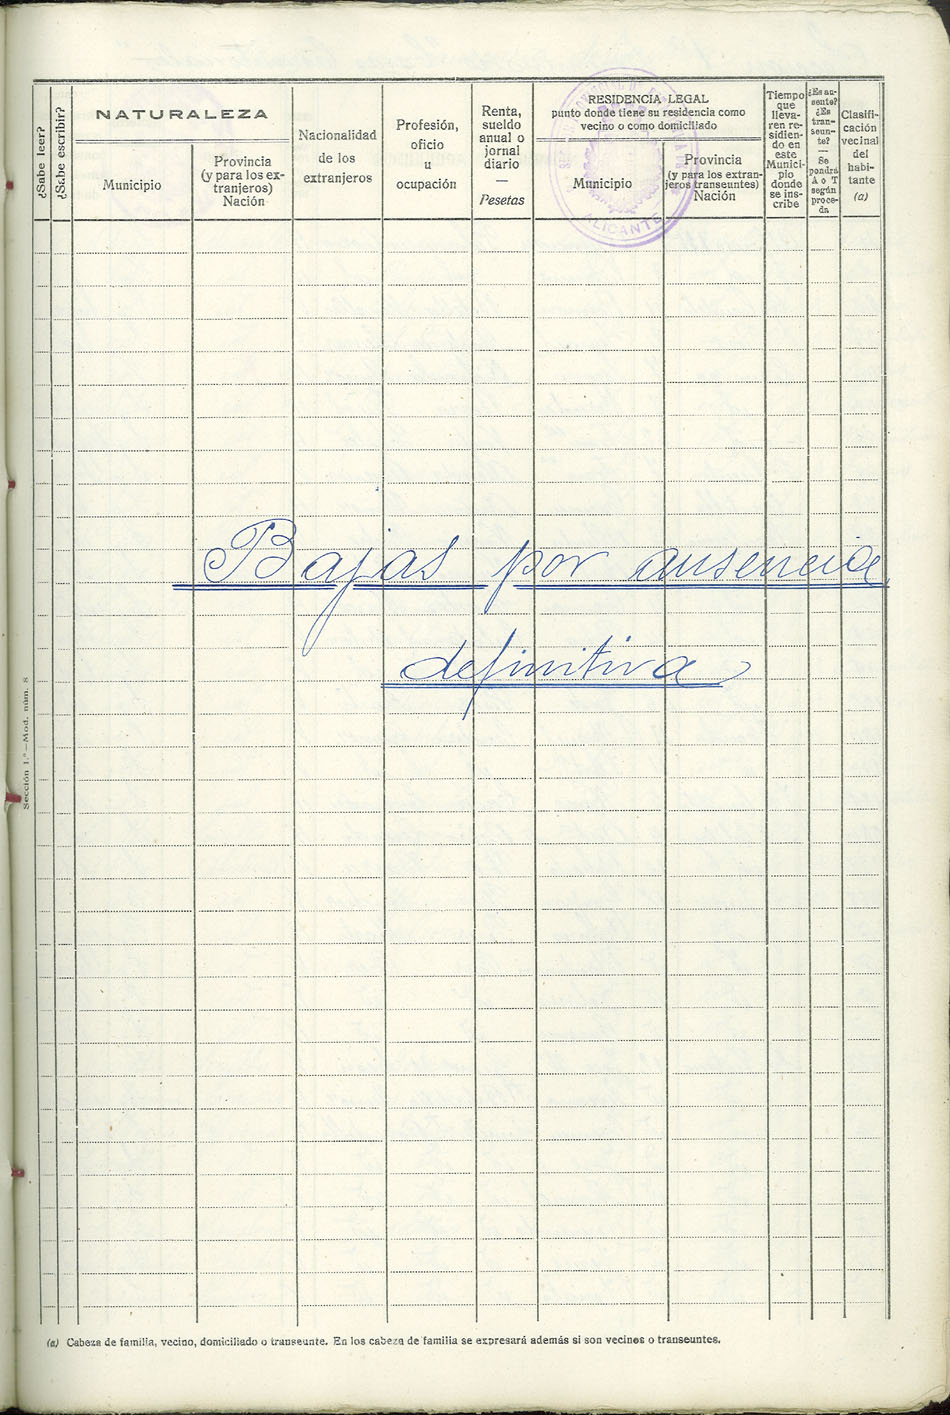 ¿Sabe leer?
¿Sabe escribir?
NATURALEZA
Municipio
Provincia
(y para los ex-
tranjeros)
Nación
Nacionalidad
de los
extranjeros
Profesión,
oficio
u
ocupación
Renta,
sueldo
anual o
jornal
diario
—
Pesetas
RESIDENCIA LEGAL
punto donde tiene su residencia como
vecino o como domiciliado
Municipio
Provincia
(y para los extran-
jeros transeuntes)
Nación
Tiempo
que
lleva-
ren re-
sidien-
do en
este
Munici-
pio
donde
se ins-
cribe
¿Es au-
sente?
¿Es
tran-
seun-
te?
—
Se
pondrá
A o T
según
proce-
da
Clasifi-
cación
vecinal
del
habi-
tante
(a)
ALICANTE
Bajas por ausencia
definitiva
Sección 1.ª—Mod. núm. 8
(a) Cabeza de familia, vecino, domiciliado o transeunte. En los cabeza de familia se expresará además si son vecinos o transeuntes.